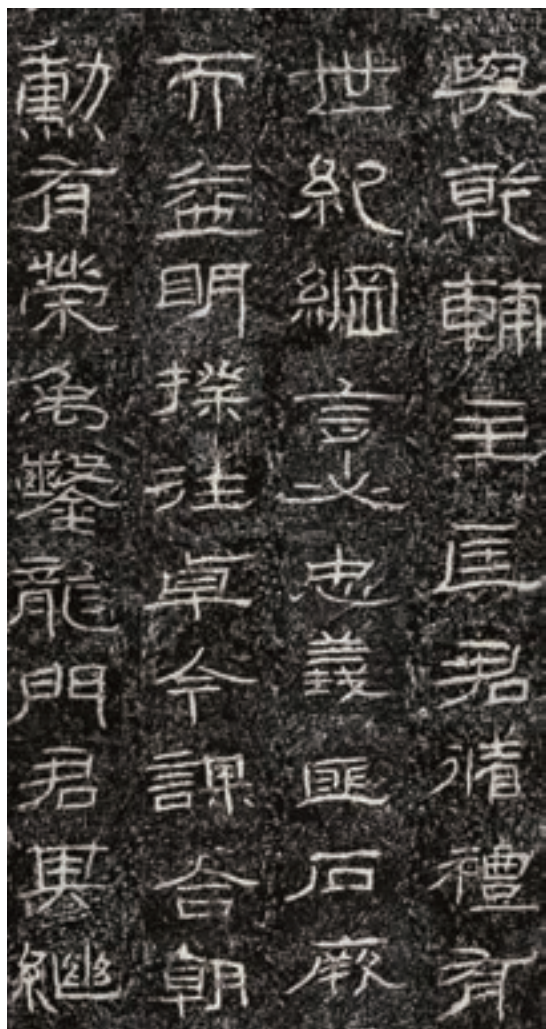 與乾輔主匡君循禮有
世紀綱言必忠義匪石厥
而益明揆往卓今謀合朝
勳有榮禹鑿龍門君其繼